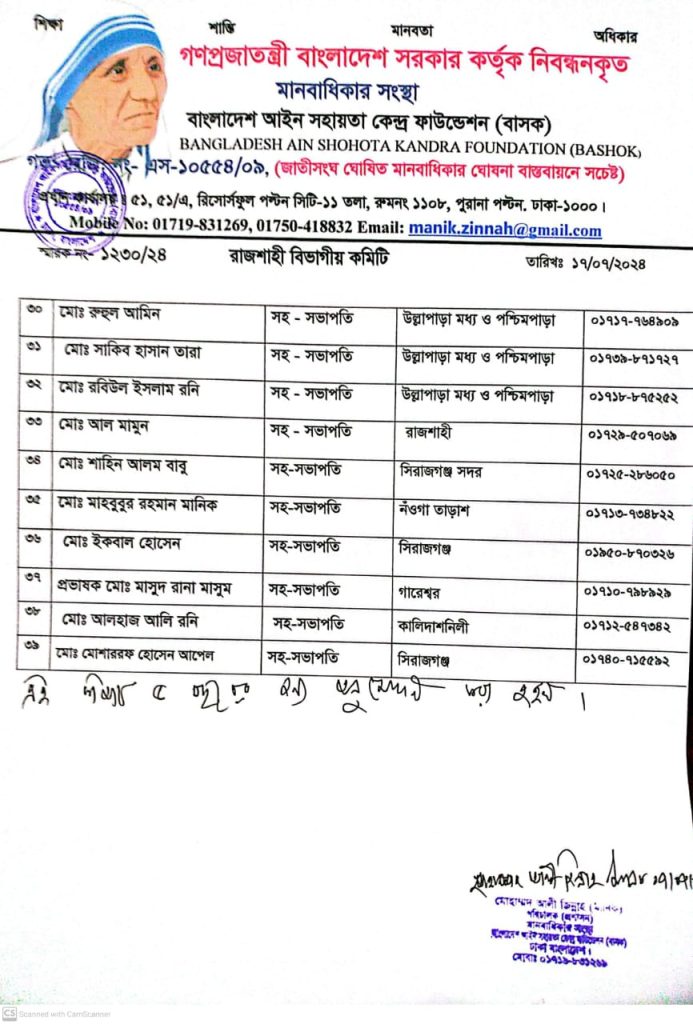 শিক্ষা শান্তি মানবতা অধিকার
গণপ্রজাতন্ত্রী বাংলাদেশ সরকার কর্তৃক নিবন্ধনকৃত
মানবাধিকার সংস্থা
বাংলাদেশ আইন সহায়তা কেন্দ্র ফাউন্ডেশন (বাসক)
BANGLADESH AIN SHOHOTA KANDRA FOUNDATION (BASHOK)
নং- এস-১০৫৫৪/০৯, (জাতীসংঘ ঘোষিত মানবাধিকার ঘোষনা বাস্তবায়নে সচেষ্ট)
৫১, ৫১/এ, রিসোর্সফুল পল্টন সিটি-১১ তলা, রুমনং ১১০৮, পুরানা পল্টন. ঢাকা-১০০০।
Mobile No: 01719-831269, 01750-418832 Email: manik.zinnah@gmail.com
স্মারক নং- ১২৩০/২৪ রাজশাহী বিভাগীয় কমিটি তারিখঃ ১৭/০৭/২০২৪
৩০ মোঃ রুহুল আমিন সহ - সভাপতি উল্লাপাড়া মধ্য ও পশ্চিমপাড়া ০১৭১৭-৭৬৪৯০৯
৩১ মোঃ সাকিব হাসান তারা সহ - সভাপতি উল্লাপাড়া মধ্য ও পশ্চিমপাড়া ০১৭৩৯-৮৭১৭২৭
৩২ মোঃ রবিউল ইসলাম রনি সহ - সভাপতি উল্লাপাড়া মধ্য ও পশ্চিমপাড়া ০১৭১৮-৮৭৫২৫২
৩৩ মোঃ আল মামুন সহ - সভাপতি রাজশাহী ০১৭২৯-৫০৭০৬৯
৩৪ মোঃ শাহিন আলম বাবু সহ-সভাপতি সিরাজগঞ্জ সদর ০১৭২৫-২৮৬০৫০
৩৫ মোঃ মাহবুবুর রহমান মানিক সহ-সভাপতি নঁওগা তাড়াশ ০১৭১৩-৭৩৪৮২২
৩৬ মোঃ ইকবাল হোসেন সহ-সভাপতি সিরাজগঞ্জ ০১৯৫০-৮৭০৩২৬
৩৭ প্রভাষক মোঃ মাসুদ রানা মাসুম সহ-সভাপতি গারেশ্বর ০১৭১০-৭৯৮৯২৯
৩৮ মোঃ আলহাজ আলি রনি সহ-সভাপতি কালিদাশনিলী ০১৭১২-৫৪৭৩৪২
৩৯ মোঃ মোশাররফ হোসেন আপেল সহ-সভাপতি সিরাজগঞ্জ ০১৭৪০-৭১৫৫৯২
এই ৫ জন্য অনুমোদন করা হইল।
মোহাম্মদ আলী জিন্নাহ
পরিচালক (প্রশাসন)
মানবাধিকার সংস্থা
বাংলাদেশ আইন সহায়তা কেন্দ্র ফাউন্ডেশন (বাসক)
ঢাকা বাংলাদেশ।
মোবাঃ ০১৭১৯-৮৩১২৬৯
CS Scanned with CamScanner